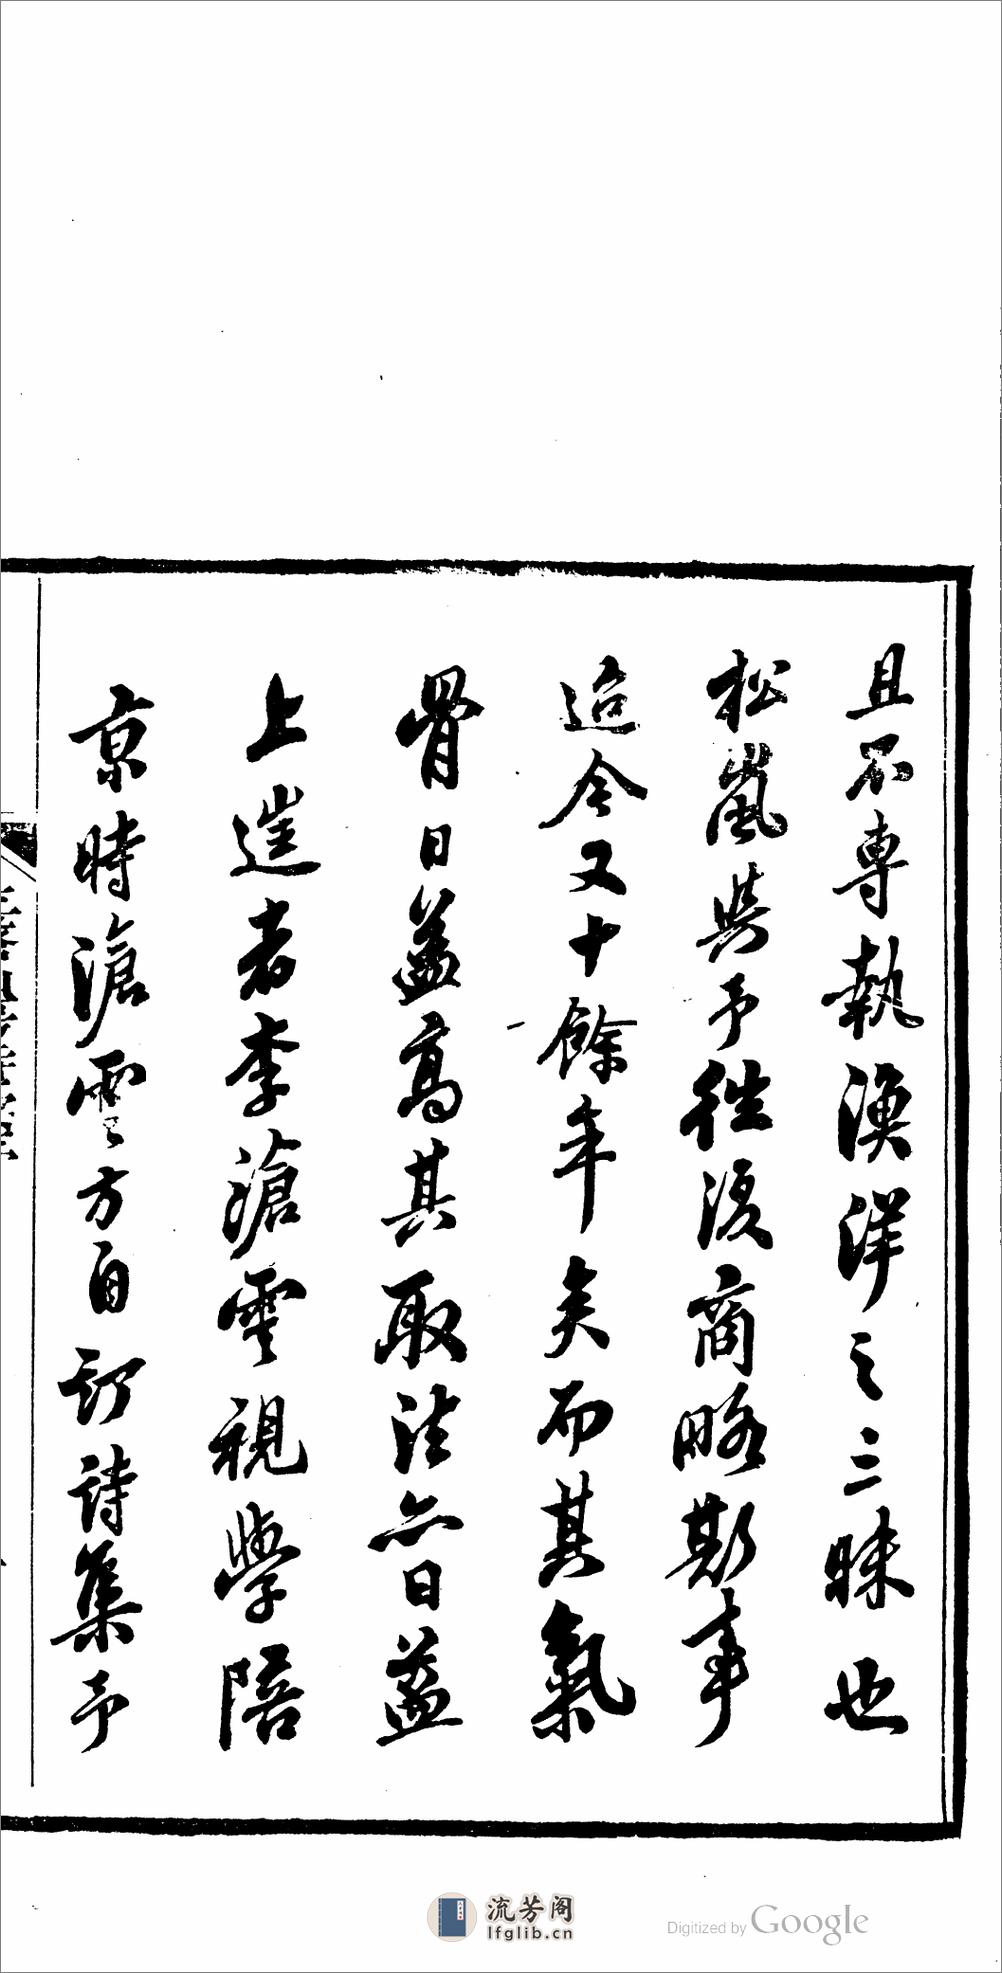 且不專執漁洋之三昧也
松嵐與予往復商略斯事
迨今又十餘年矣而其氣
骨日益高其取法亦日益
上選者李滄雲視學陪
京時滄雲方自訂詩集予
流芳阁
lfglib.cn
Digitized by Google